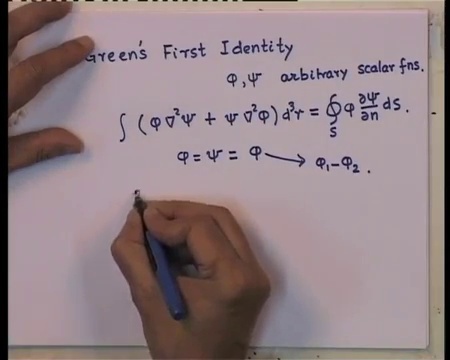 Green's First Identity
φ, ψ arbitrary scalar fns.
∫ (φ ∇²ψ + ψ ∇²φ) d³r = ∮_S φ ∂ψ/∂n dS.
φ = ψ = φ → φ₁ - φ₂.